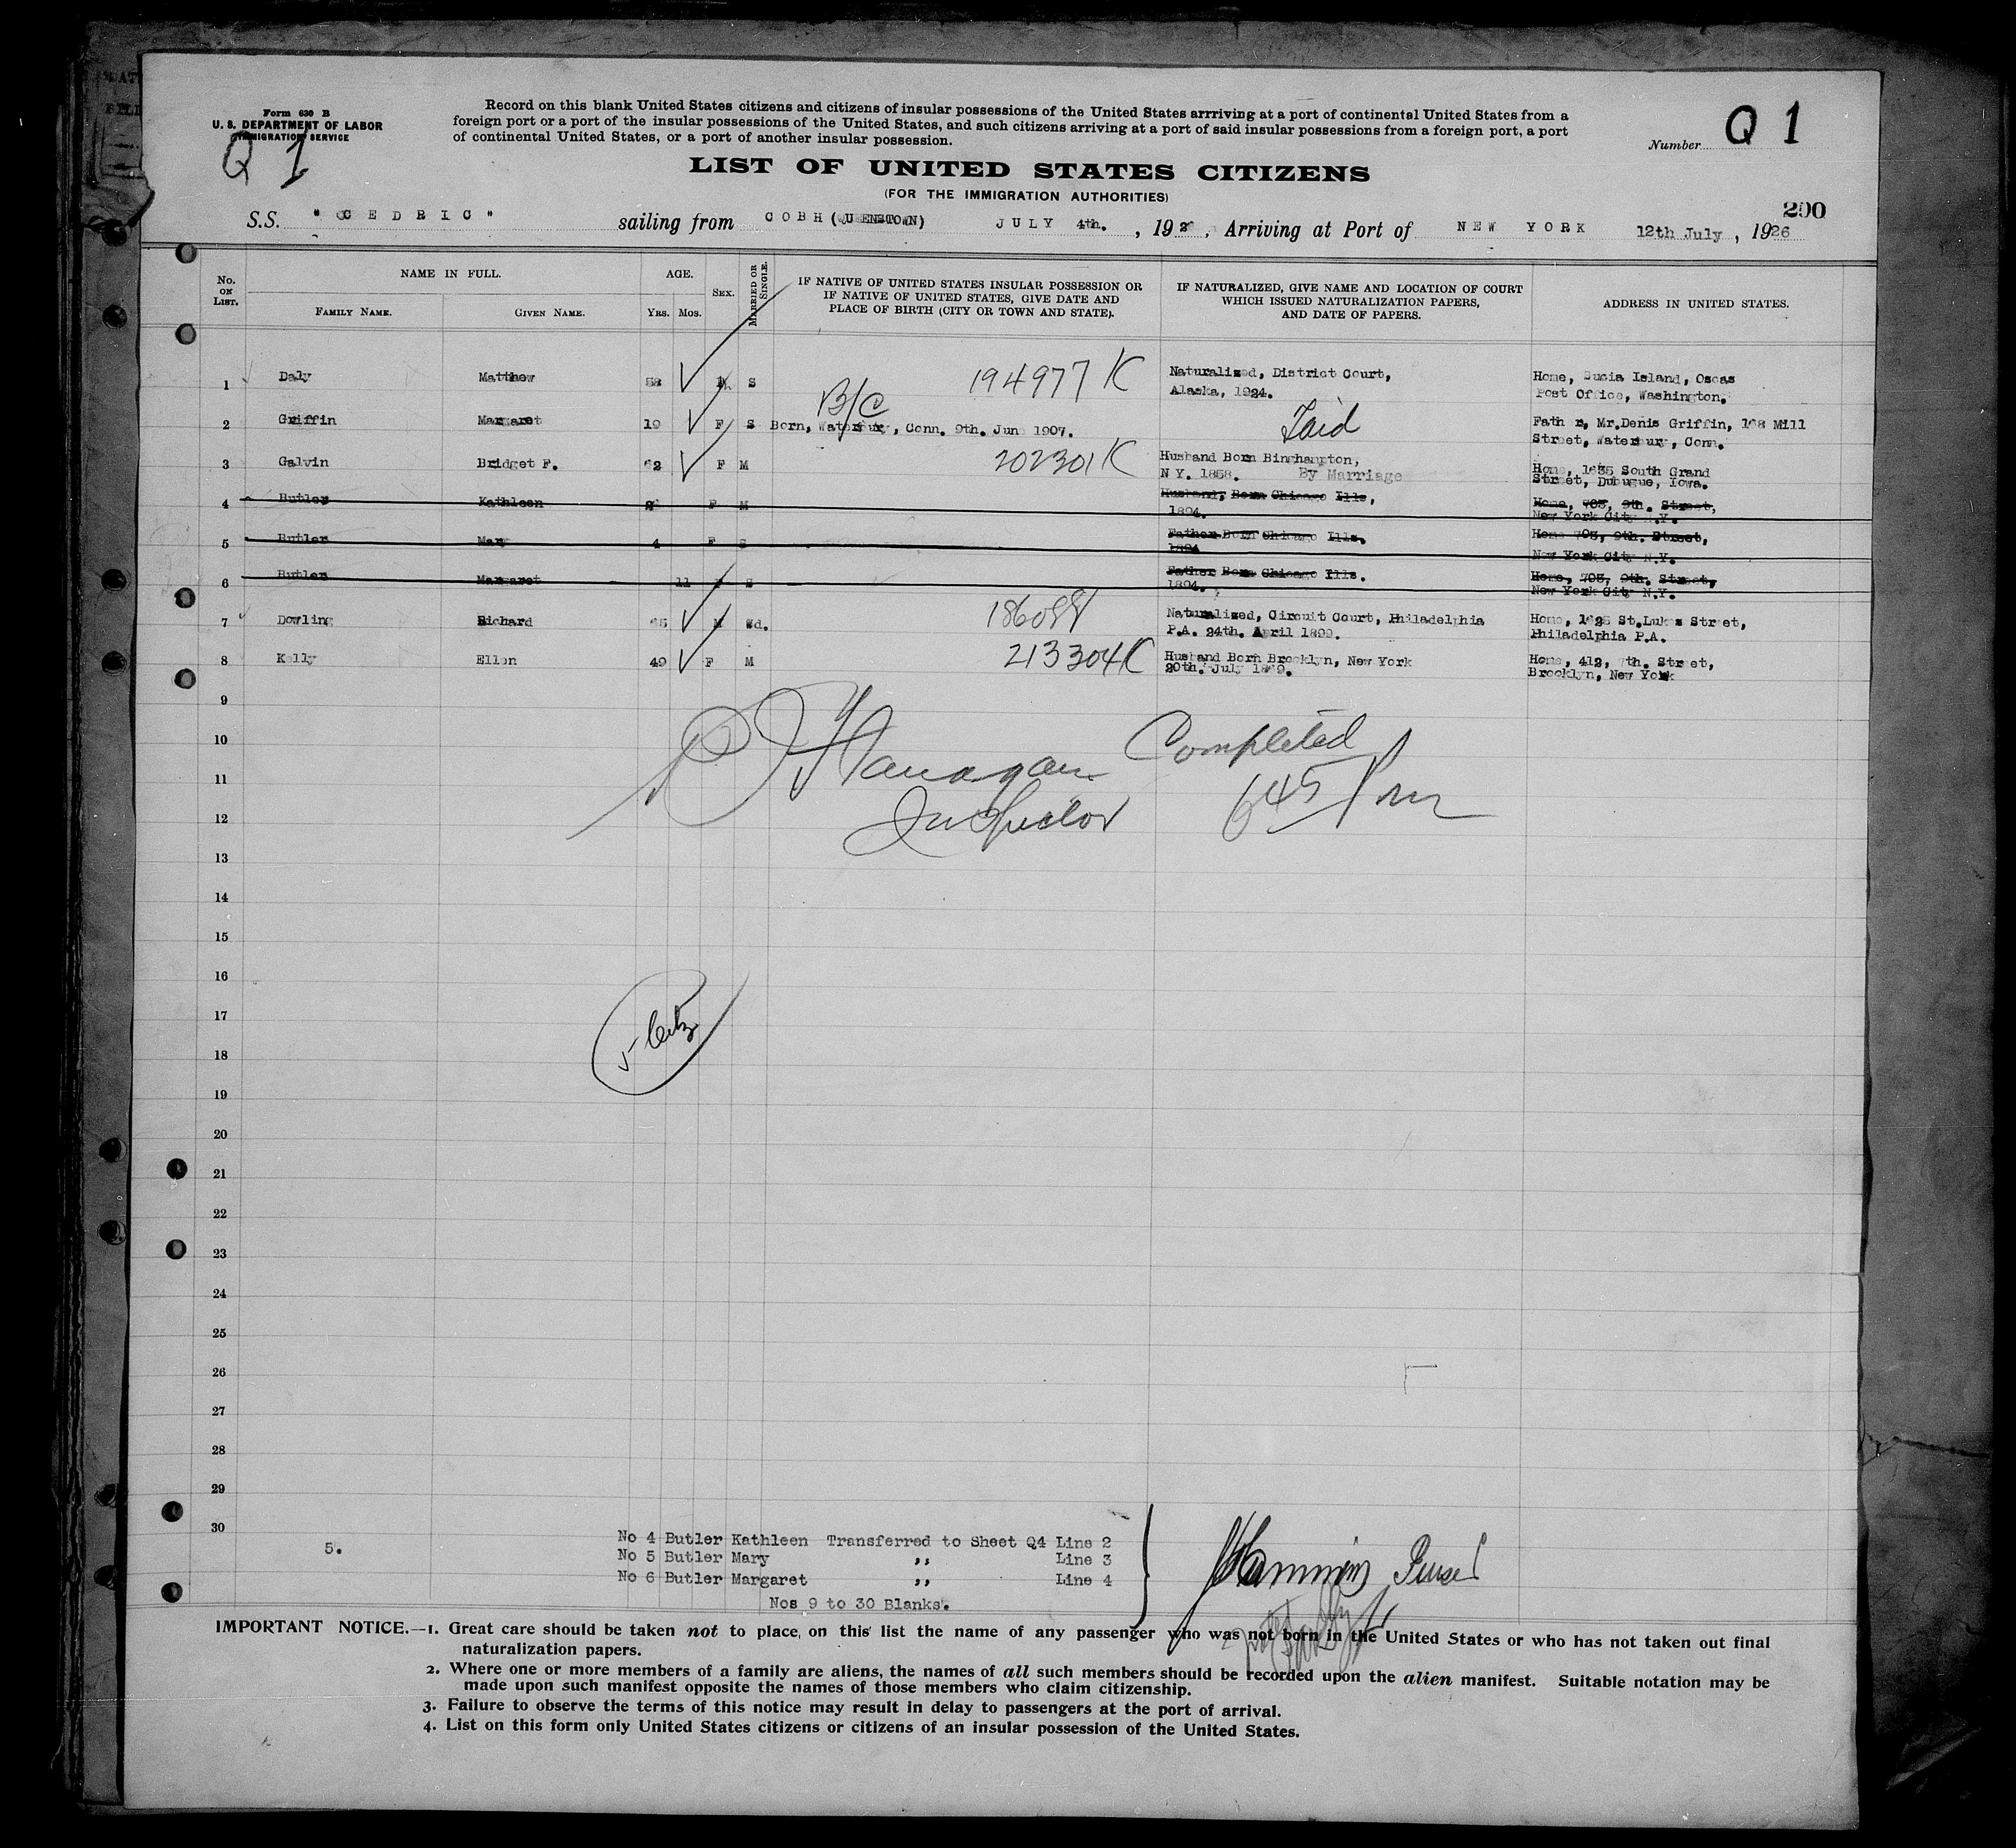 Form 630 B
U. S. DEPARTMENT OF LABOR
IMMIGRATION SERVICE
Q 1
Record on this blank United States citizens and citizens of insular possessions of the United States arrriving at a port of continental United States from a
foreign port or a port of the insular possessions of the United States, and such citizens arriving at a port of said insular possessions from a foreign port, a port
of continental United States, or a port of another insular possession.
Number Q 1
LIST OF UNITED STATES CITIZENS
(FOR THE IMMIGRATION AUTHORITIES)
200
S.S. "CEDRIC" sailing from COBH (QUEENSTOWN) JULY 4th. , 192 , Arriving at Port of NEW YORK 12th July , 1926
No. ON LIST.
NAME IN FULL.
FAMILY NAME. GIVEN NAME.
AGE.
YRS. MOS.
SEX.
MARRIED OR SINGLE.
IF NATIVE OF UNITED STATES INSULAR POSSESSION OR
IF NATIVE OF UNITED STATES, GIVE DATE AND
PLACE OF BIRTH (CITY OR TOWN AND STATE).
IF NATURALIZED, GIVE NAME AND LOCATION OF COURT
WHICH ISSUED NATURALIZATION PAPERS,
AND DATE OF PAPERS.
ADDRESS IN UNITED STATES.
1 Daly Matthew 58 M S 194977 K Naturalized, District Court,
Alaska, 1924.
Home, Sucia Island, Oscas
Post Office, Washington.
B/C
2 Griffin Margaret 19 F S Born, Waterbury, Conn. 9th. June 1907.
Father, Mr.Denis Griffin, 168 Mill
Street, Waterbury, Conn.
3 Galvin Bridget F. 62 F M 202301 K Husband Born Binghampton,
N Y. 1858. By Marriage
Home, 1635 South Grand
Street, Dubuque, Iowa.
4 Butler Kathleen F M Husband, Born Chicago Ills,
1894.
Home, 703, 9th. Street,
New York City N.Y.
5 Butler Mary 4 F S Father Born Chicago Ills,
1894
Home 703, 9th. Street,
New York City N.Y.
6 Butler Margaret 11 F S Father Born Chicago Ills.
1894.
Home, 703, 9th. Street,
New York City N.Y.
7 Dowling Richard 65 M Wd. Naturalized, Circuit Court, Philadelphia
P.A. 24th. April 1899.
Home, St.Lukes Street,
Philadelphia P.A.
8 Kelly Ellen 49 F M 213304 K Husband Born Brooklyn, New York
20th. July
Home, 412, 7th. Street,
Brooklyn, New York
9
10
11
12
Flanagan Completed
Inspector 645 Pm
13
14
15
16
17
5 Citz
18
19
20
21
22
23
24
25
26
27
28
29
30
5.
No 4 Butler Kathleen Transferred to Sheet Q4 Line 2
No 5 Butler Mary ,, Line 3
No 6 Butler Margaret ,, Line 4
Nos 9 to 30 Blanks.
Purser
IMPORTANT NOTICE.—1. Great care should be taken not to place on this list the name of any passenger who was not born in the United States or who has not taken out final
naturalization papers.
2. Where one or more members of a family are aliens, the names of all such members should be recorded upon the alien manifest. Suitable notation may be
made upon such manifest opposite the names of those members who claim citizenship.
3. Failure to observe the terms of this notice may result in delay to passengers at the port of arrival.
4. List on this form only United States citizens or citizens of an insular possession of the United States.